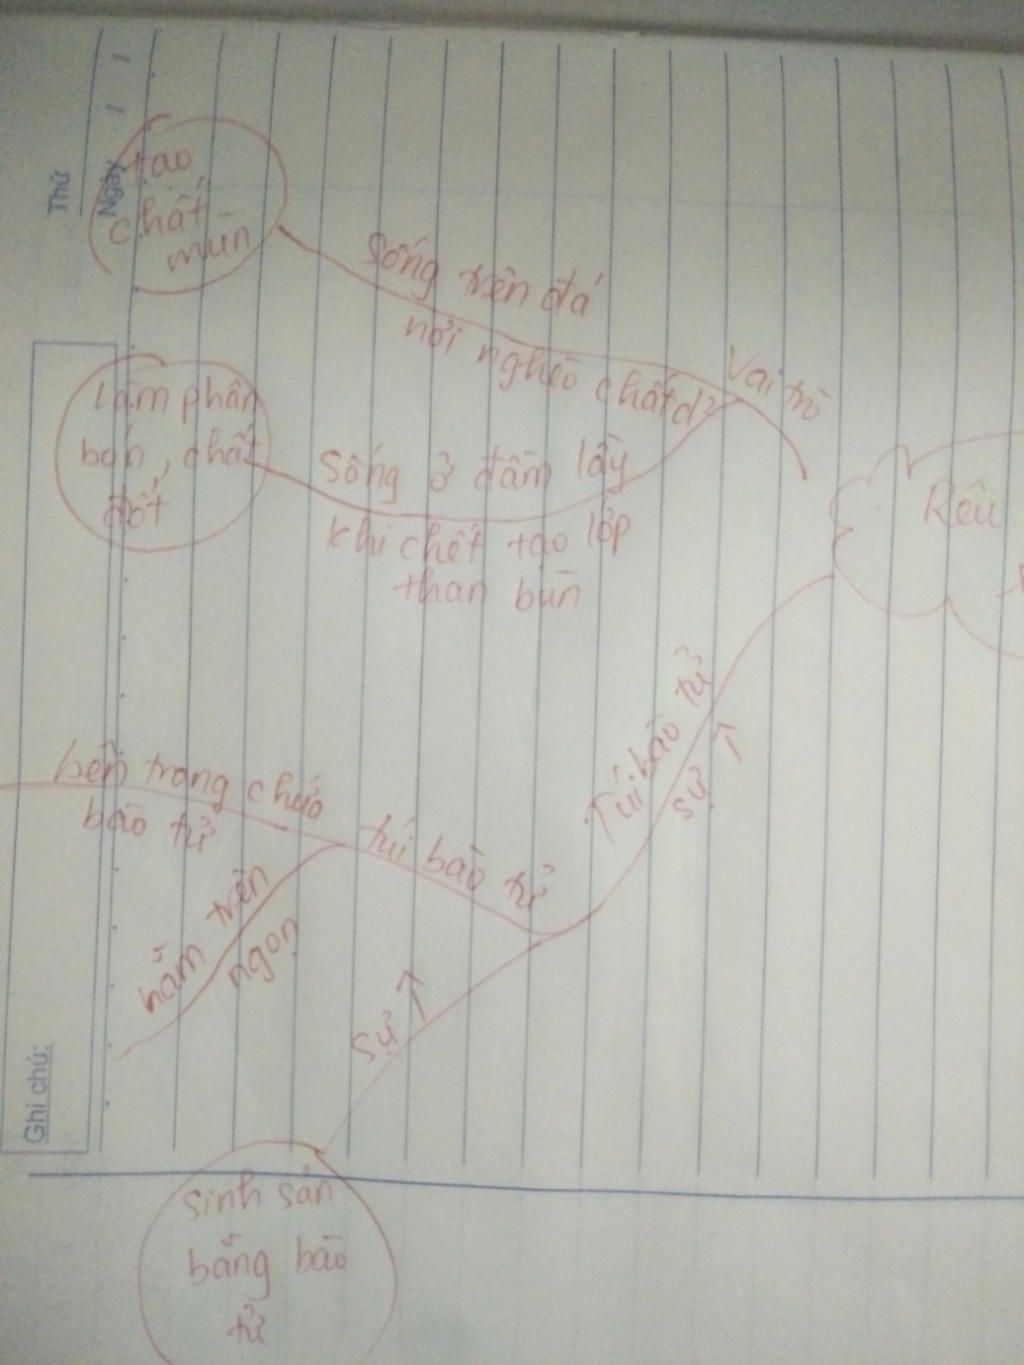 Thứ
Ngày / /
tạo
chất
mùn
Sống trên đá
nơi nghèo chất d²
Vai trò
Làm phân
bón, chất
đốt
Sống ở đầm lầy
khi chết tạo lớp
than bùn
Rêu
Túi bào tử
sự ↑
bên trong chứa
bào tử
túi bào tử
nằm trên
ngọn
Sự ↑
Ghi chú:
sinh sản
bằng bào
tử